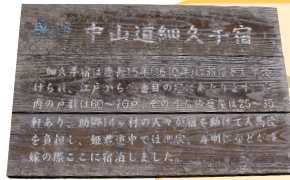 中山道細久手宿
細久手宿は慶長15年(1610年)に
けられ、江戸から 番目の にあたります。
内の戸数は60〜70戸、そのうち旅籠屋は25〜30
軒あり、助郷14ヶ村の人々が宿を助けて人馬役
を負担し、姫君道中では
嫁の際ここに宿泊しました。